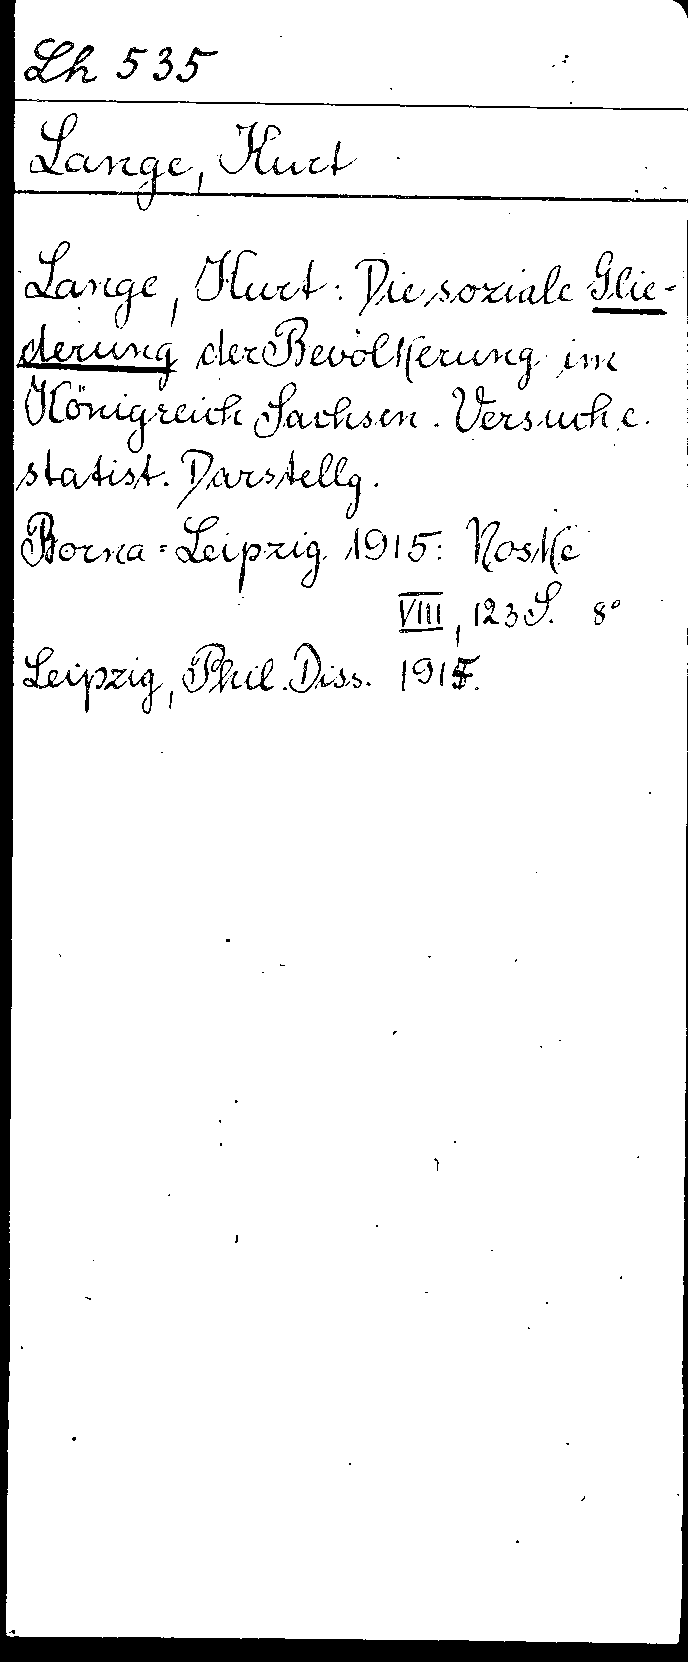 Lh 535
Lange, Kurt
Lange, Kurt: Die soziale Glie-
derung der Bevölkerung im
Königreich Sachsen. Versuch e.
statist. Darstellg.
Borna-Leipzig 1915: Noske
VIII, 123 S. 8°
Leipzig, Phil. Diss. 1915.